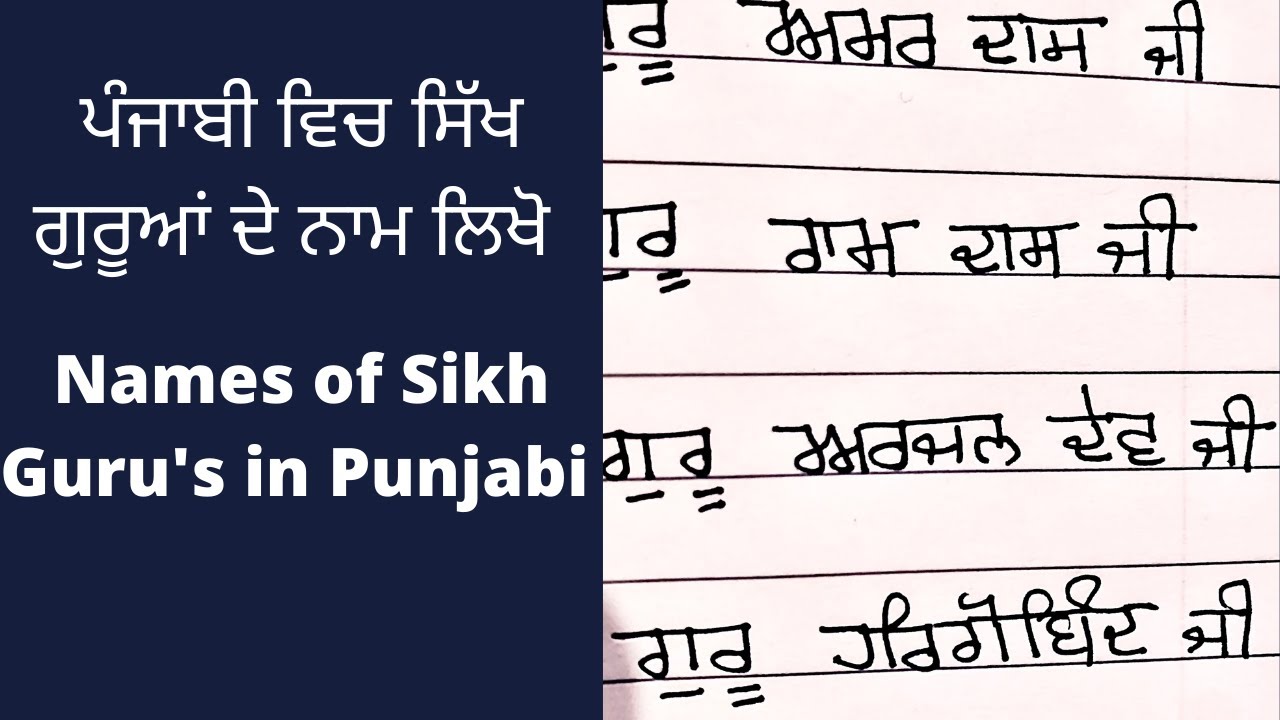 ਪੰਜਾਬੀ ਵਿਚ ਸਿੱਖ
ਗੁਰੂਆਂ ਦੇ ਨਾਮ ਲਿਖੋ
Names of Sikh
Guru's in Punjabi
ਅਮਰ ਦਾਸ ਜੀ
ਰਾਮ ਦਾਸ ਜੀ
ਗੁਰੂ ਅਰਜਨ ਦੇਵ ਜੀ
ਗੁਰੂ ਹਰਿਗੋਬਿੰਦ ਜੀ